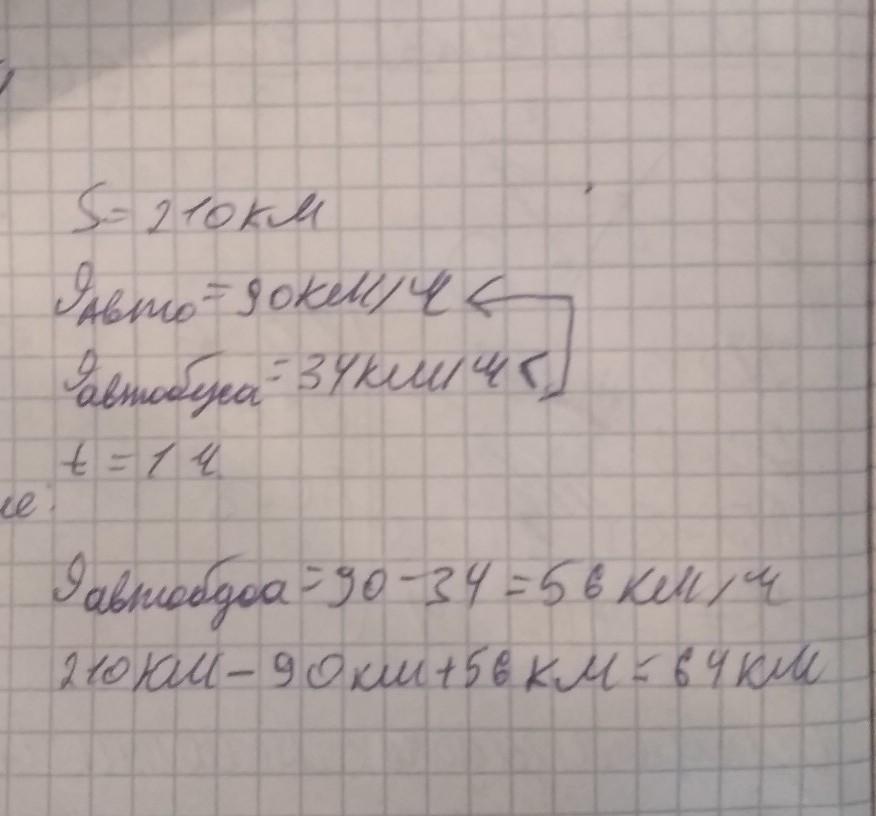 S = 210 км
ϑавто = 90 км/ч <
ϑавтобуса = 34 км/ч <
t = 1 ч
ие:
ϑавтобуса = 90 - 34 = 56 км/ч
210 км - 90 км + 56 км = 64 км